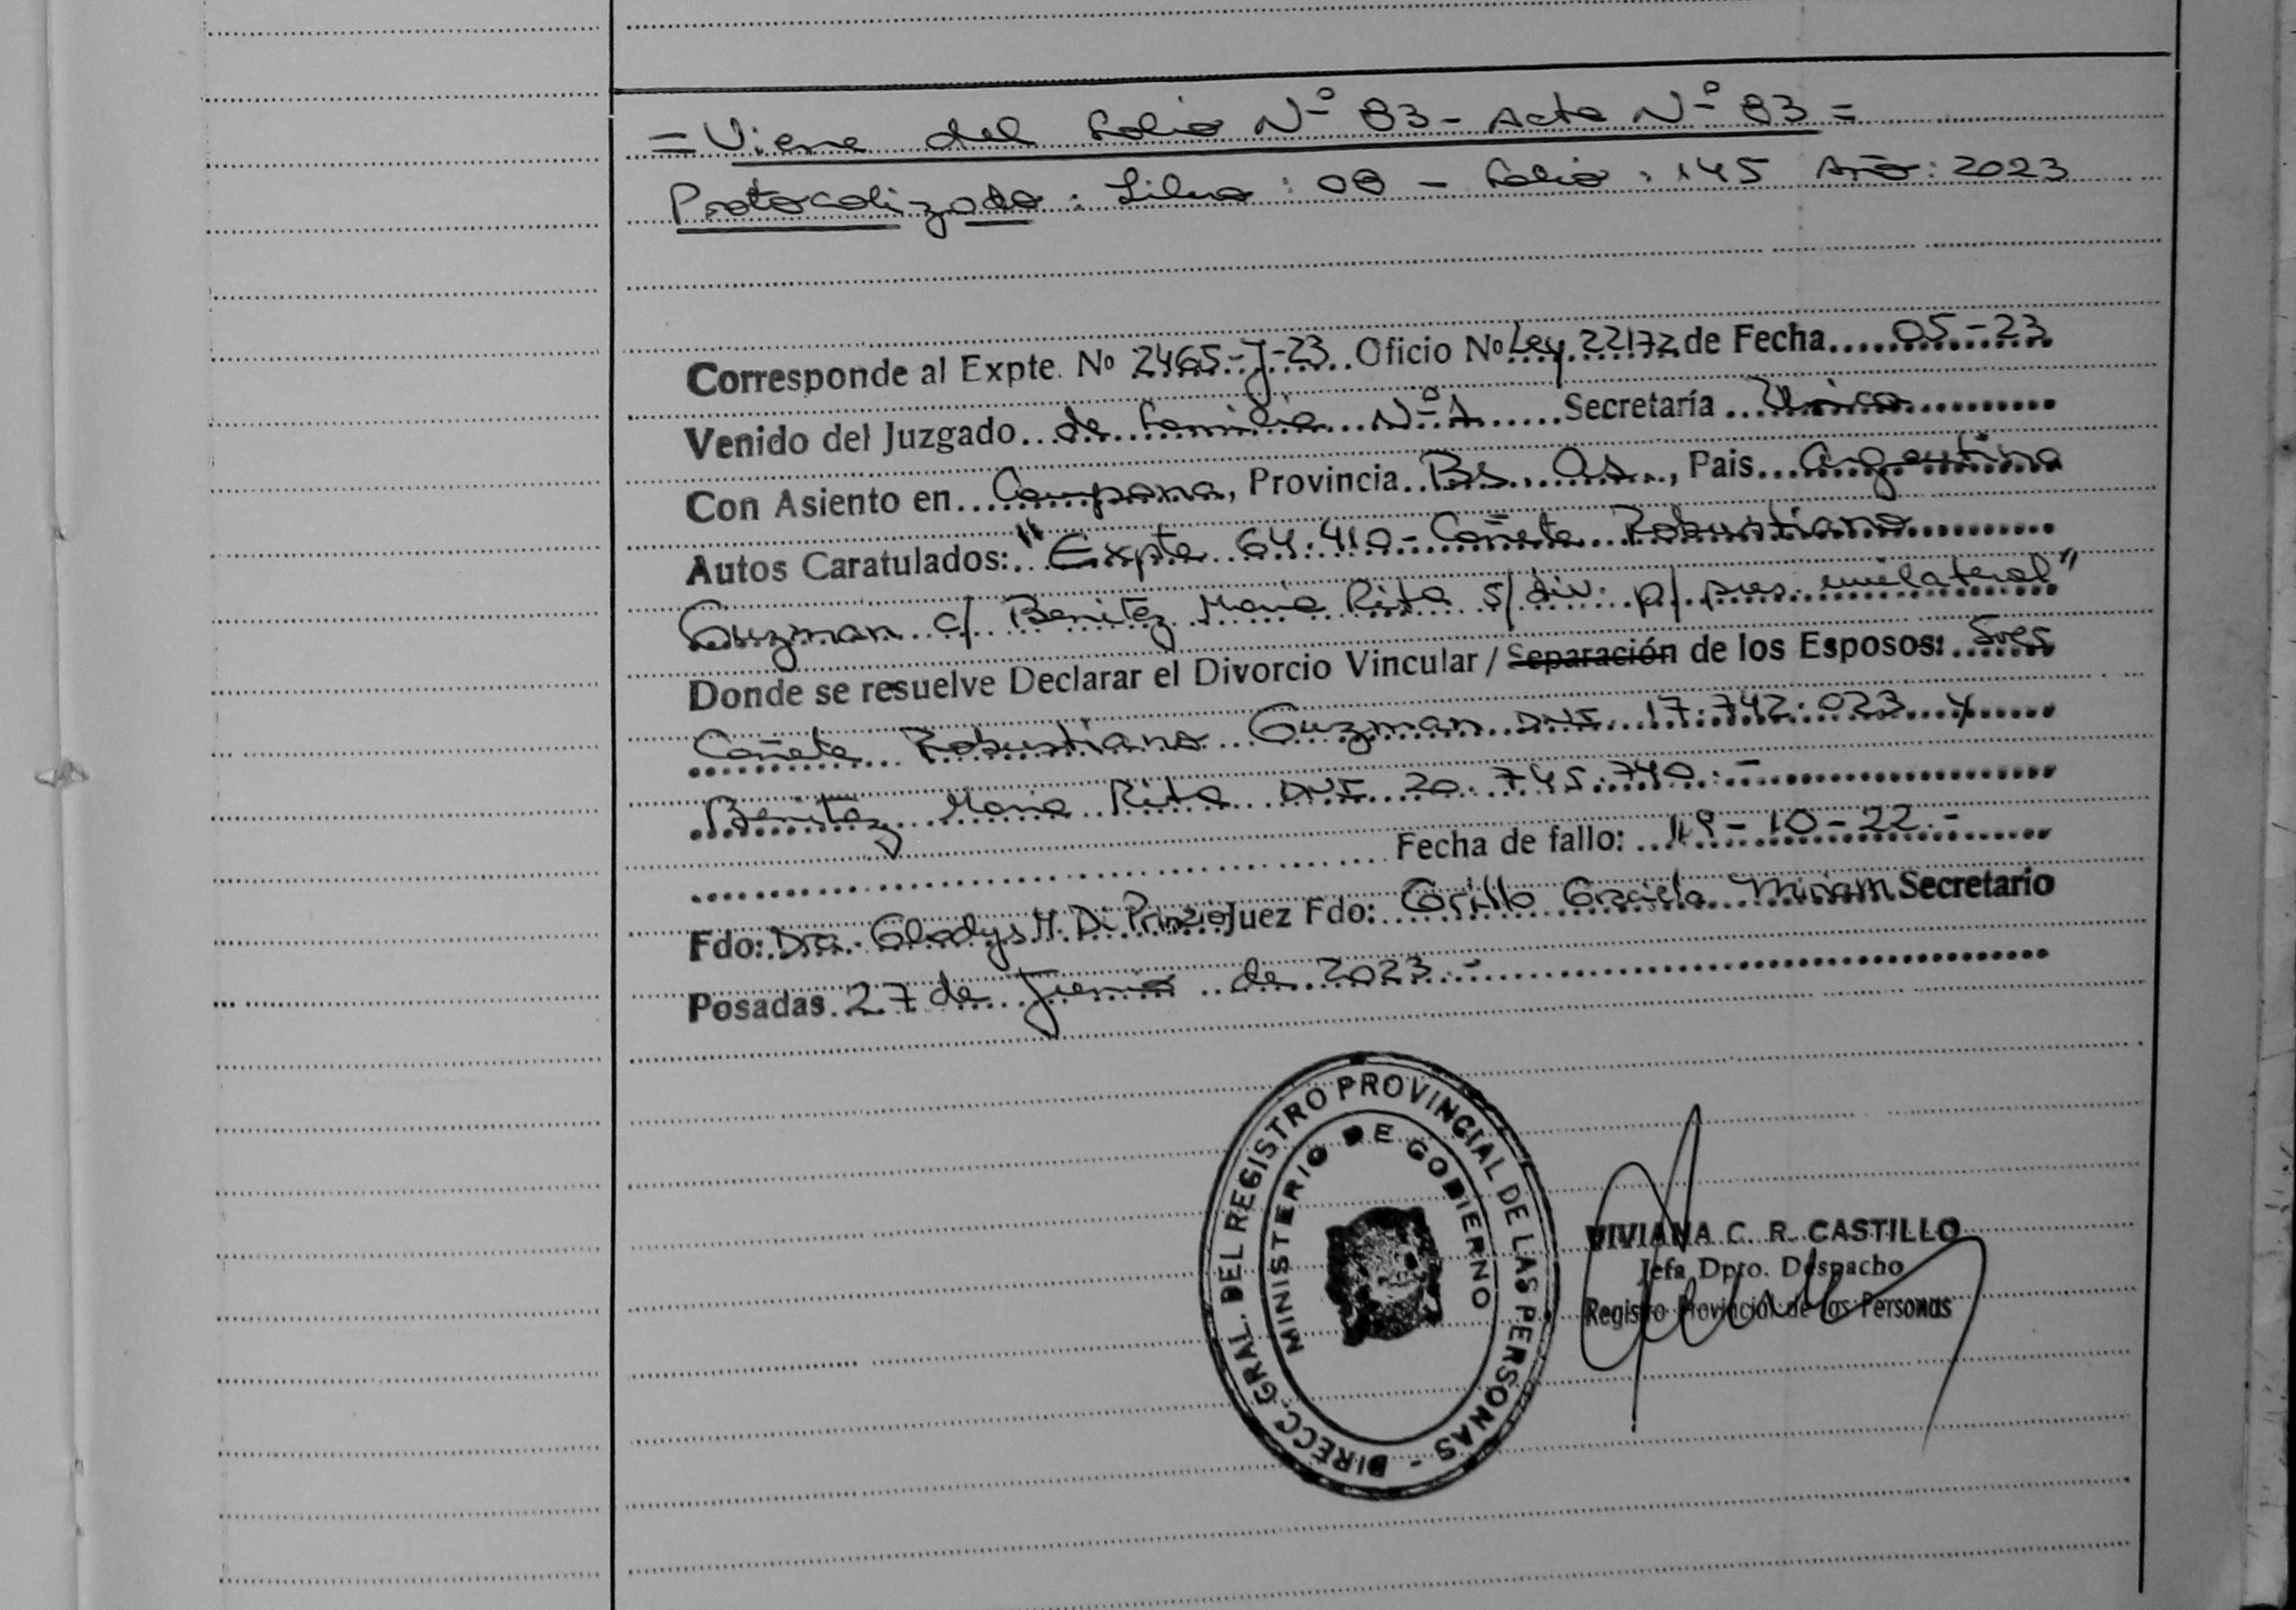 = Viene del folio Nº 83 - Acta Nº 83 =
Protocolizado : Libro : 08 - folio : 145 Año : 2023
Corresponde al Expte. Nº 2465-J-23 Oficio Nº Ley 22172 de Fecha 05-23
Venido del Juzgado de familia Nº 1 Secretaría Única
Con Asiento en Campana, Provincia Bs. As., Pais Argentina
Autos Caratulados: "Expte 64.410 - Cañete Robustiano
Guzman c/ Benitez Maria Rita s/ div. p/ pres. unilateral"
Donde se resuelve Declarar el Divorcio Vincular / Separación de los Esposos: Sres
Cañete Robustiano Guzman DNI 17.742.023 y
Benitez Maria Rita DNI 20.745.740.-
Fecha de fallo: 19-10-22.-
Fdo: Dra. Gladys M. Di Prinzio Juez Fdo: Graciela Miriam Secretario
Posadas 27 de Junio de 2023.-
DIRECC. GRAL. DEL REGISTRO PROVINCIAL DE LAS PERSONAS -
MINISTERIO DE GOBIERNO
VIVIANA C. R. CASTILLO
Jefa Dpto. Despacho
Registro Provincial de las Personas